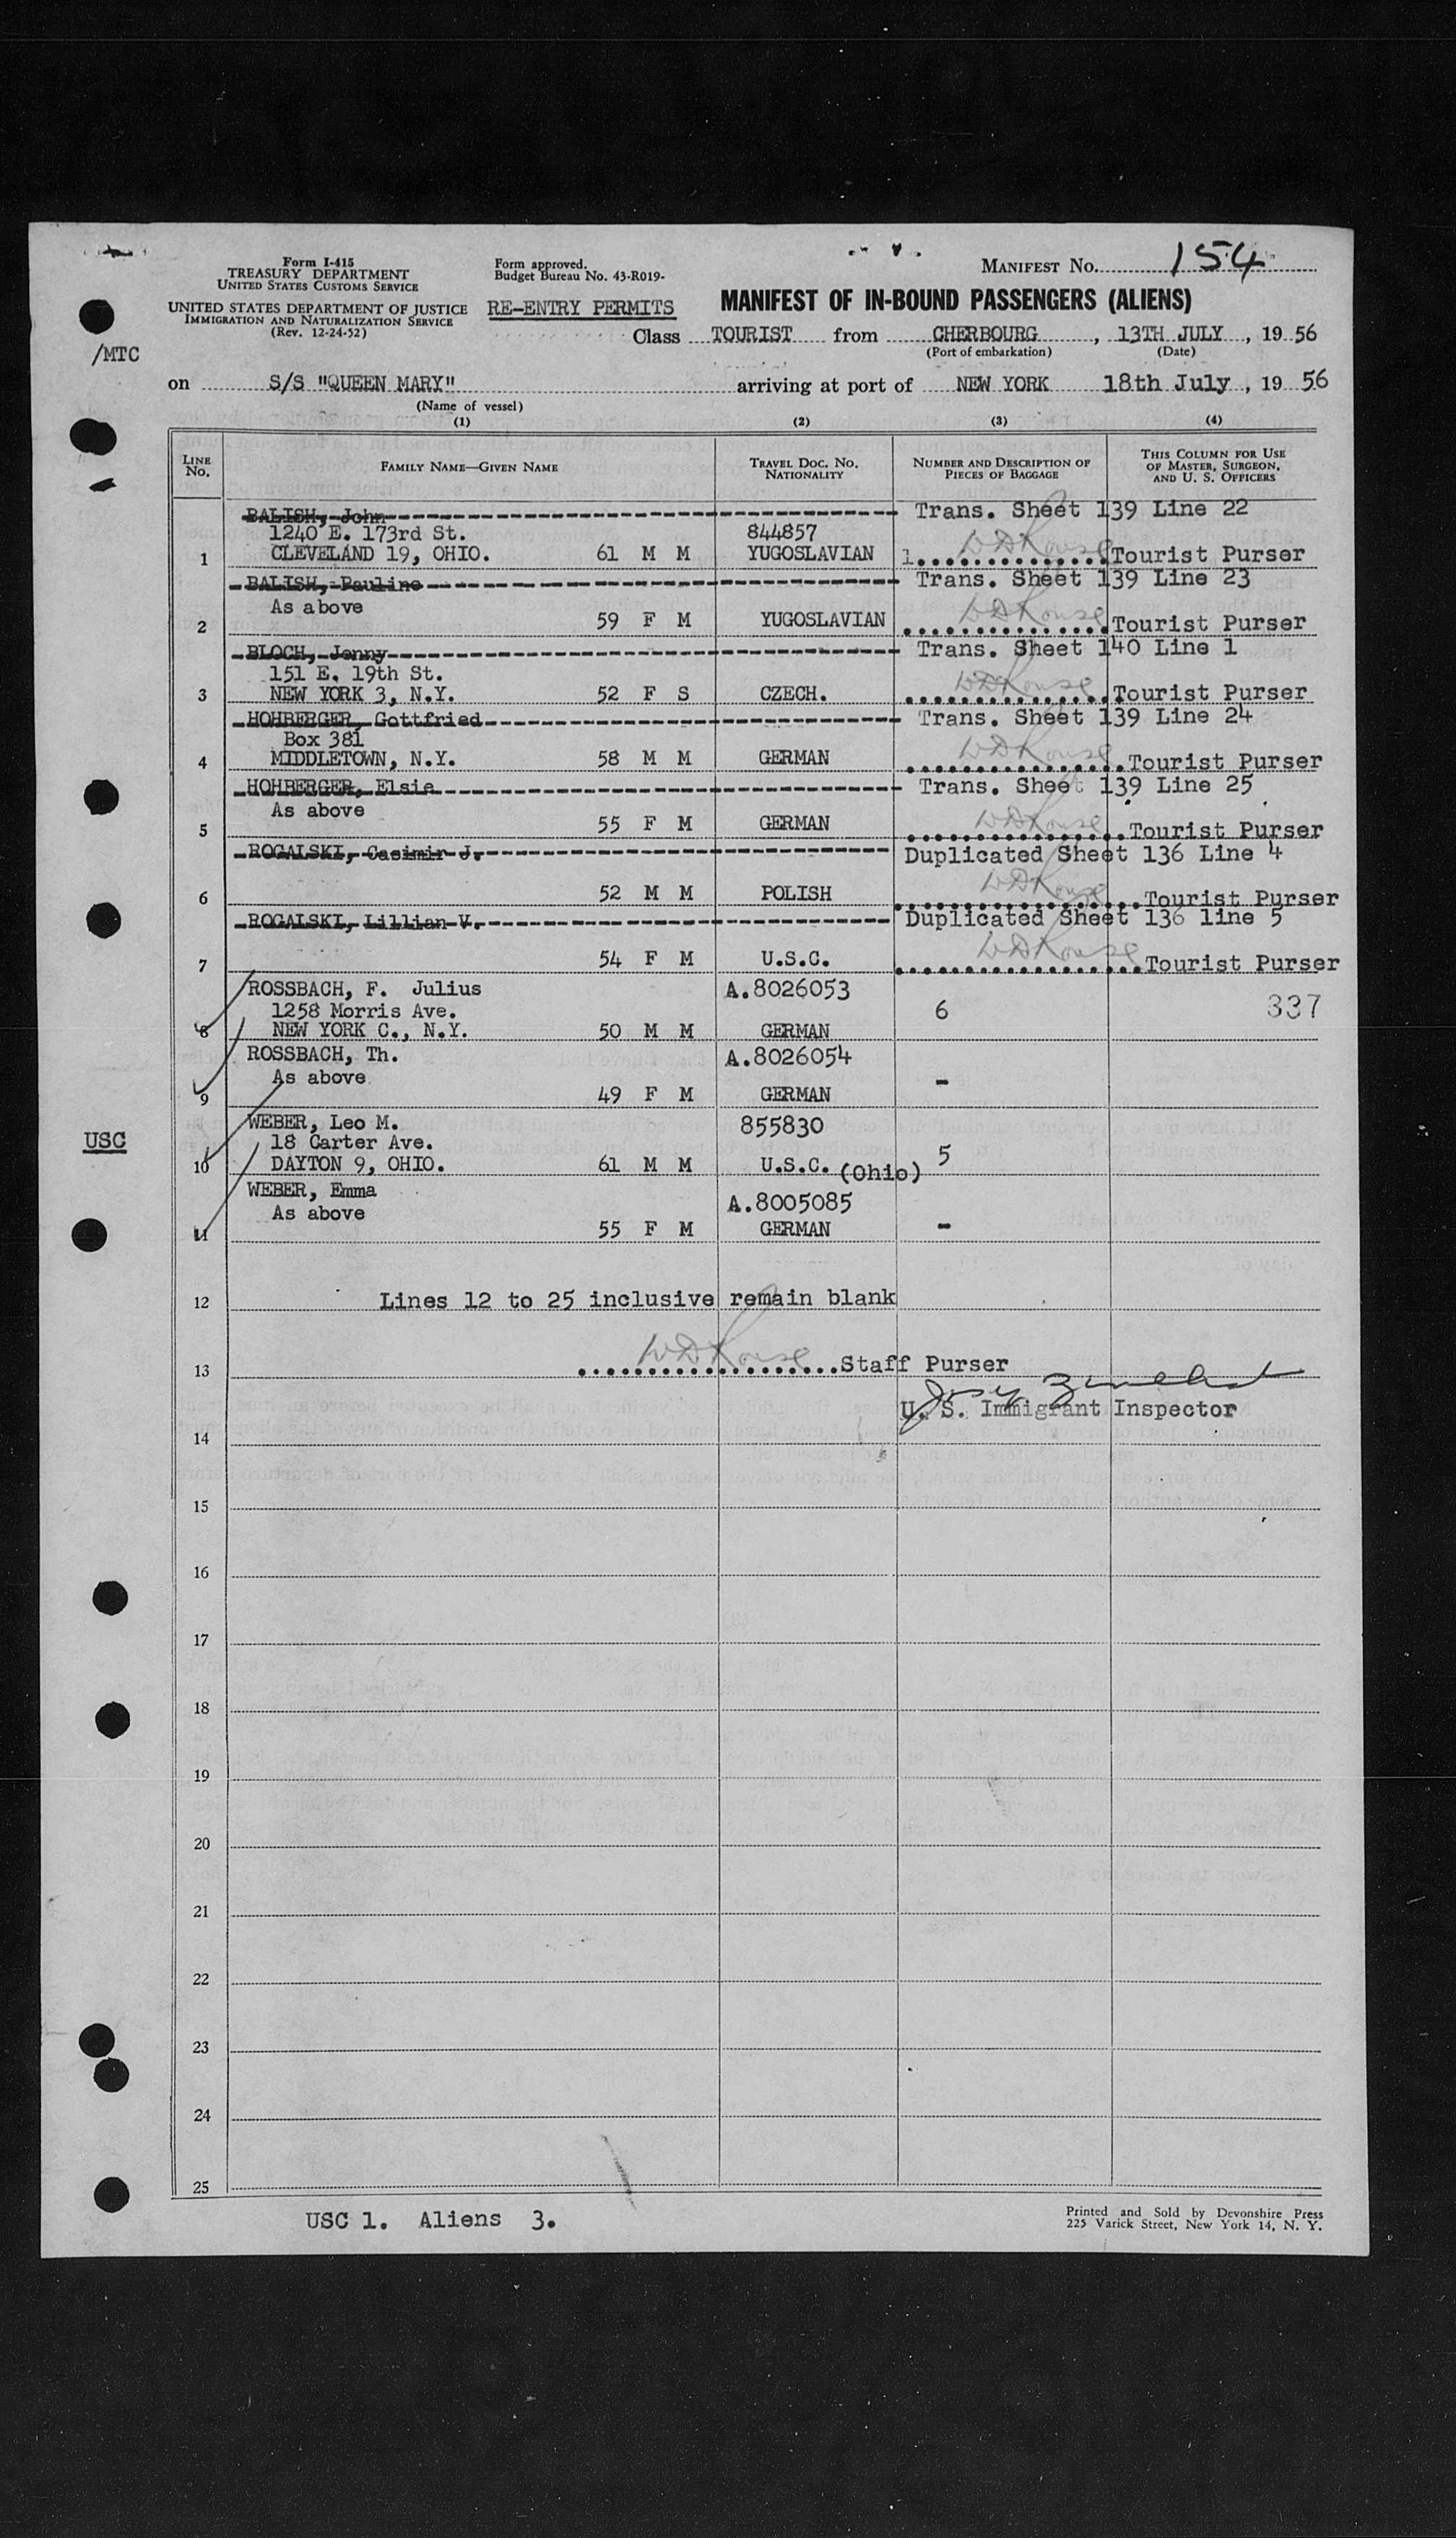 Form I-415
TREASURY DEPARTMENT
UNITED STATES CUSTOMS SERVICE
UNITED STATES DEPARTMENT OF JUSTICE
IMMIGRATION AND NATURALIZATION SERVICE
(Rev. 12-24-52)
/MTC
Form approved.
Budget Bureau No. 43-R019-
RE-ENTRY PERMITS
MANIFEST NO. 154
MANIFEST OF IN-BOUND PASSENGERS (ALIENS)
Class TOURIST from CHERBOURG, 13TH JULY, 1956
(Port of embarkation) (Date)
on S/S "QUEEN MARY" arriving at port of NEW YORK 18th July, 1956
(Name of vessel)
(1) (2) (3) (4)
LINE NO. FAMILY NAME—GIVEN NAME TRAVEL DOC. NO. NATIONALITY NUMBER AND DESCRIPTION OF PIECES OF BAGGAGE THIS COLUMN FOR USE OF MASTER, SURGEON, AND U. S. OFFICERS
BALISH, John Trans. Sheet 139 Line 22
1240 E. 173rd St. 844857
1 CLEVELAND 19, OHIO. 61 M M YUGOSLAVIAN 1 Tourist Purser
BALISH, Pauline Trans. Sheet 139 Line 23
As above
2 59 F M YUGOSLAVIAN Tourist Purser
BLOCH, Jenny Trans. Sheet 140 Line 1
151 E. 19th St.
3 NEW YORK 3, N.Y. 52 F S CZECH. Tourist Purser
HOHBERGER, Gottfried Trans. Sheet 139 Line 24
Box 381
4 MIDDLETOWN, N.Y. 58 M M GERMAN Tourist Purser
HOHBERGER, Elsie Trans. Sheet 139 Line 25
As above
5 55 F M GERMAN Tourist Purser
ROGALSKI, Casimir J. Duplicated Sheet 136 Line 4
6 52 M M POLISH Tourist Purser
ROGALSKI, Lillian V. Duplicated Sheet 136 line 5
7 54 F M U.S.C. Tourist Purser
ROSSBACH, F. Julius A.8026053
1258 Morris Ave. 6 337
8 NEW YORK C., N.Y. 50 M M GERMAN
ROSSBACH, Th. A.8026054
As above -
9 49 F M GERMAN
WEBER, Leo M. 855830
USC 18 Carter Ave.
10 DAYTON 9, OHIO. 61 M M U.S.C. (Ohio) 5
WEBER, Emma A.8005085
As above
11 55 F M GERMAN -
12 Lines 12 to 25 inclusive remain blank
13 Staff Purser
U. S. Immigrant Inspector
14
15
16
17
18
19
20
21
22
23
24
25
USC 1. Aliens 3.
Printed and Sold by Devonshire Press
225 Varick Street, New York 14, N. Y.